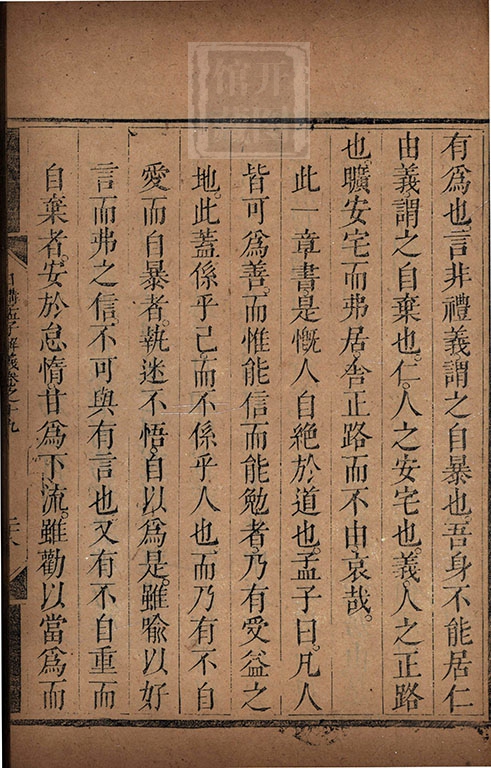 有爲也言非禮義謂之自暴也吾身不能居仁
由義謂之自棄也仁人之安宅也義人之正路
也曠安宅而弗居舍正路而不由哀哉
此一章書是慨人自絕於道也孟子曰凡人
皆可爲善而惟能信而能勉者乃有受益之
地此蓋係乎己而不係乎人也而乃有不自
愛而自暴者執迷不悟自以爲是雖喻以好
言而弗之信不可與有言也又有不自重而
自棄者安於怠惰甘爲下流雖勸以當爲而
日講孟子解義卷之十九